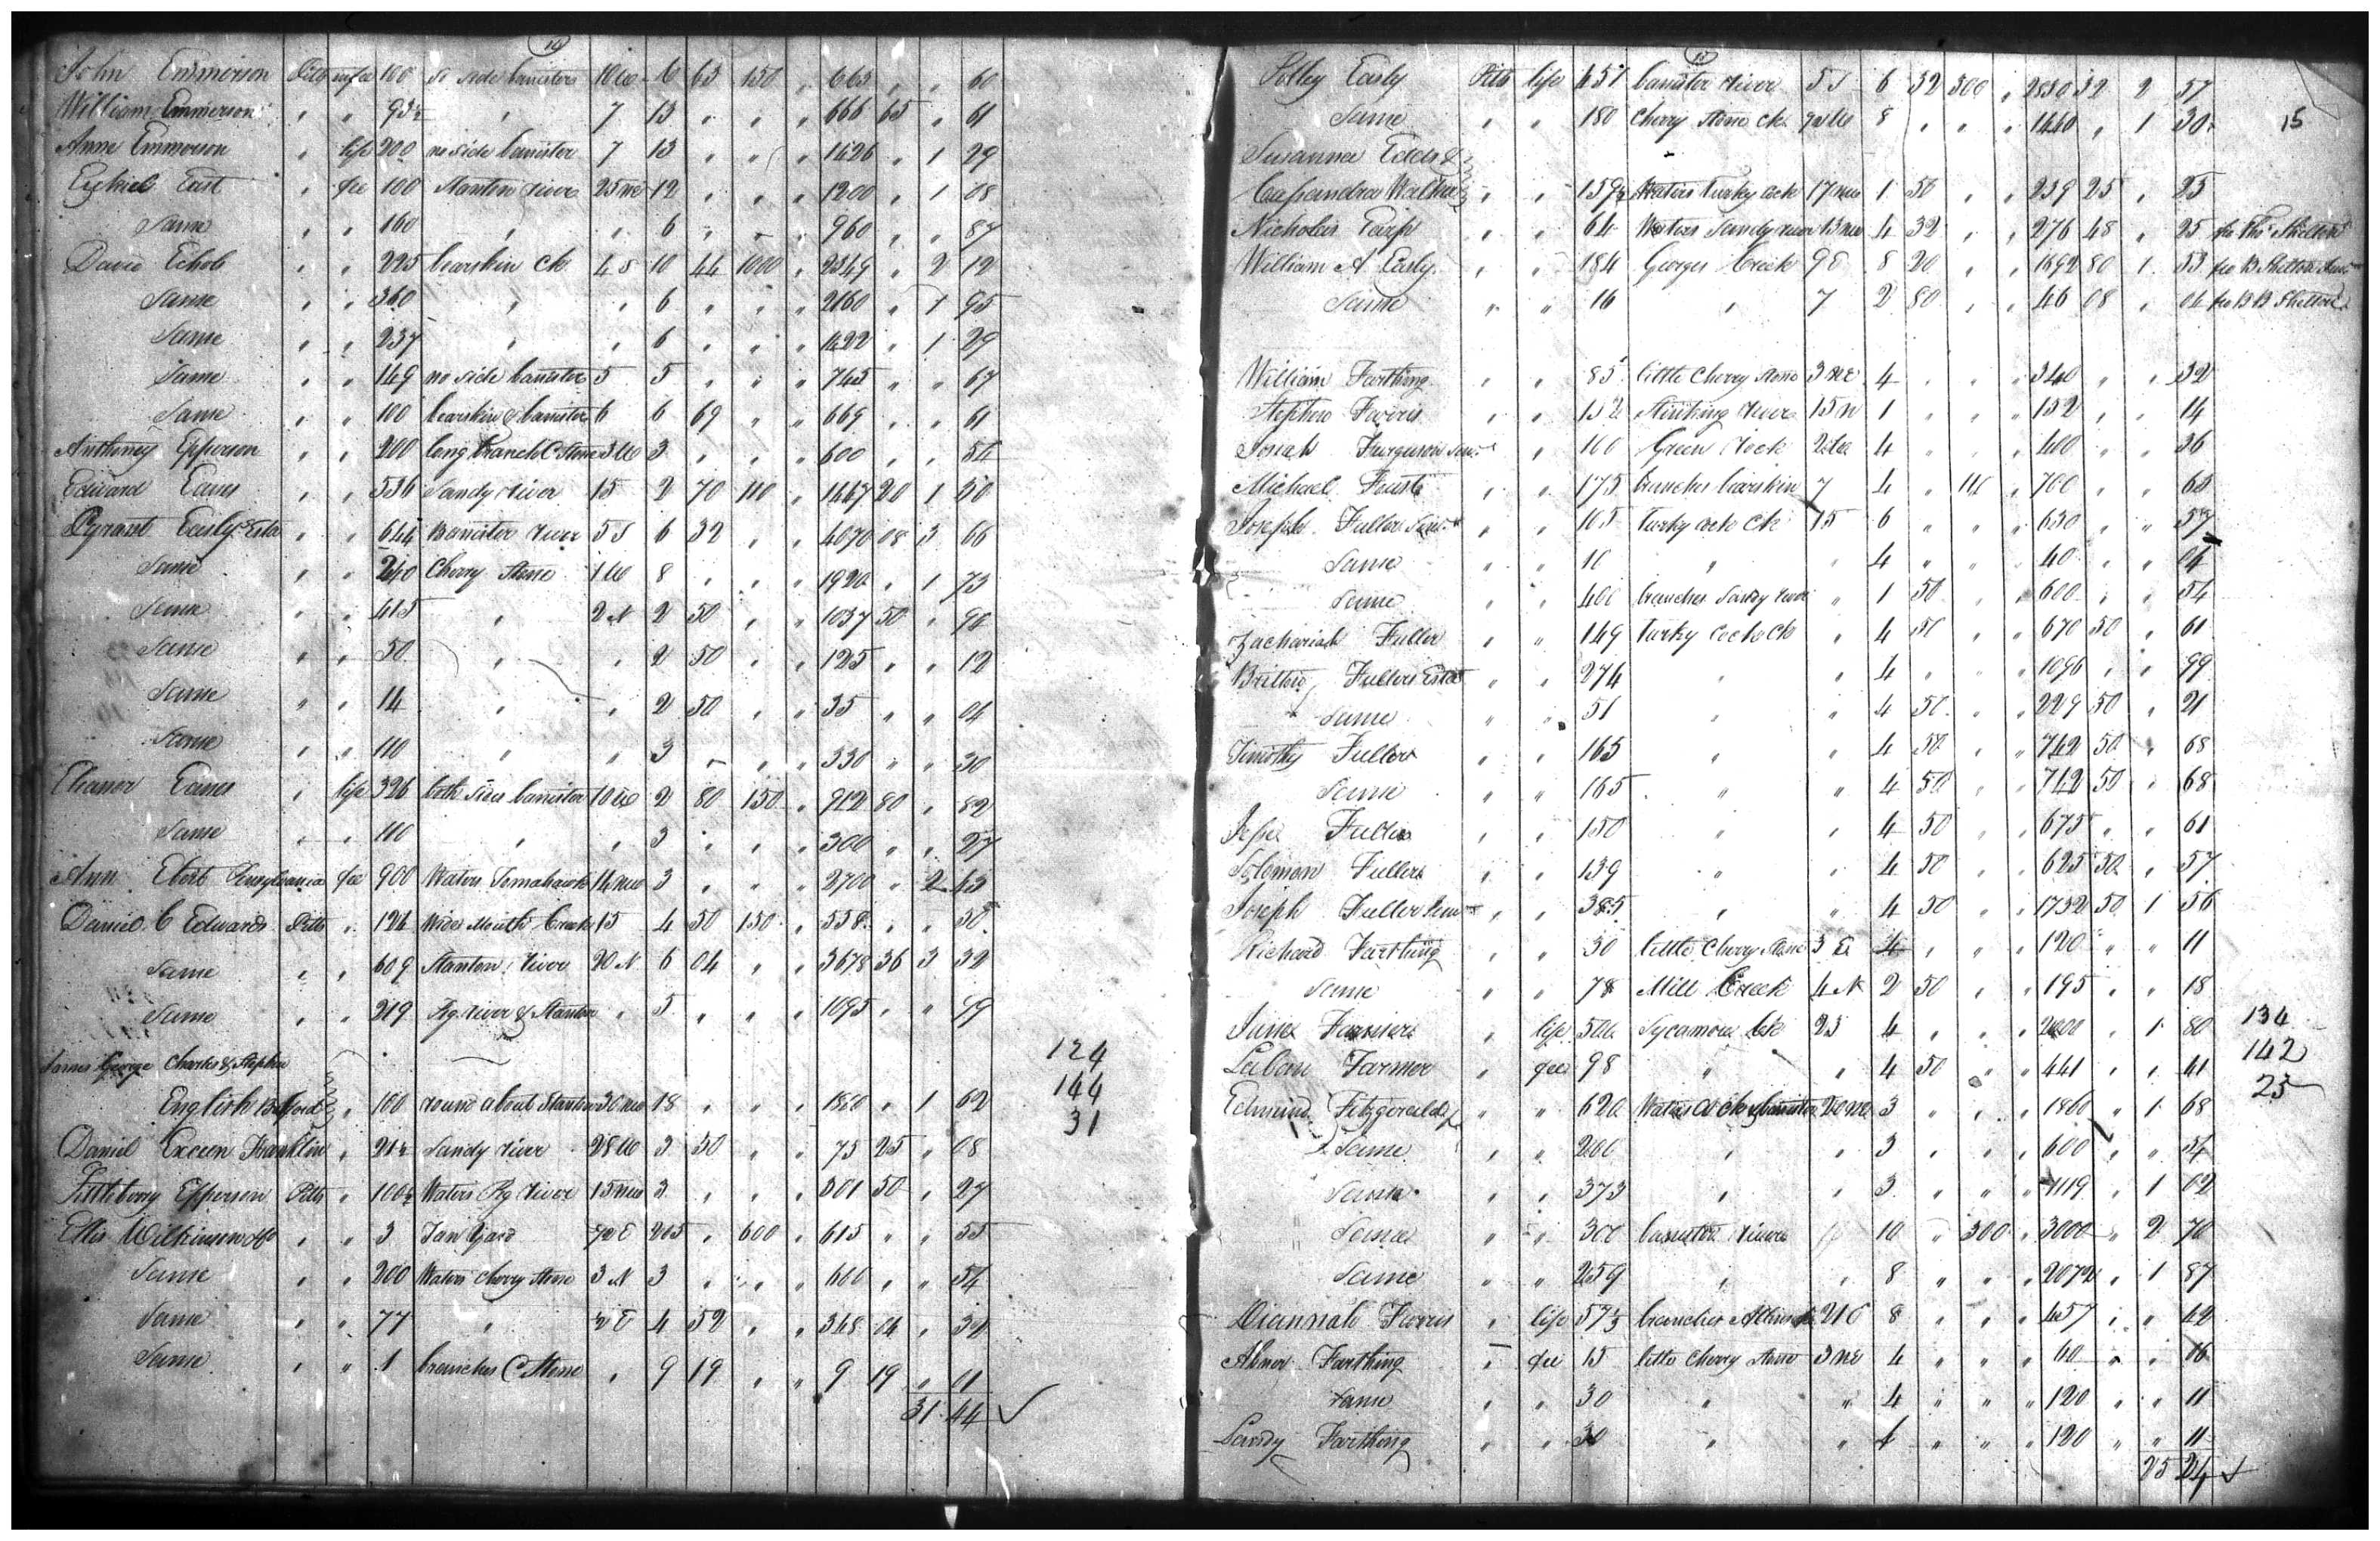 14
John Emmerson Pitts in fee 100 so side banister 10 W 6 63 150 " 663 " " 60
William Emmerson " " 95½ " 7 13 " " " 666 65 " 61
Anne Emmerson " life 200 no side banister 7 13 " " " 1426 " 1 29
Ezekiel East " fee 100 Stanton river 25 NW 12 " " " 1200 " 1 08
Same " " 160 " " 6 " " " 960 " " 87
David Echols " " 225 bearskin Ck 4 S 10 44 1000 " 2349 " 2 12
Same " " 360 " " 6 " " " 2160 " 1 95
Same " " 237 " " 6 " " " 1422 " 1 29
Same " " 149 no side banister 5 5 " " " 745 " " 67
Same " " 100 bearskin & banister 6 6 69 " " 669 " " 61
Anthoney Epperson " " 200 long branch C Stone 3 W 3 " " " 600 " " 54
Edward Eanes " " 536 Sandy river 15 2 70 110 " 1447 20 1 30
Pyrant Easly Esta " " 644 Banister river 5 S 6 32 " " 4070 08 3 66
Same " " 240 Cherry Stone 1 W 8 " " " 1920 " 1 73
Same " " 415 " 2 N 2 50 " " 1037 50 " 90
Same " " 50 " " 2 50 " " 125 " " 12
Same " " 14 " " 2 50 " " 35 " " 04
Same " " 110 " " 3 " " " 330 " " 30
Eleanor Eanes " life 326 both sides banister 10 W 2 80 150 " 912 80 " 82
Same " " 100 " " 3 " " " 300 " " 27
Ann Ebert Pensylvania fee 900 Waters Tomahawk 14 NW 3 " " " 2700 " 2 43
Daniel C Edwards Pitts " 124 Wides Mouth Creek 15 4 50 150 " 558 " " 50
Same " " 609 Stanton river 20 N 6 04 " " 3678 36 3 32
Same " " 219 Pig river & Stanton " 5 " " " 1095 " " 99
James George Charles & Stephen
English Bedford " 100 round about Stanton 30 NW 18 " " " 1800 " 1 62
Daniel Exceen Franklin " 21½ Sandy river 28 W 3 50 " " 75 25 " 08
Littleberry Epperson Pitts " 100½ Waters Pig river 15 NW 3 " " " 301 50 " 27
Ellis Wilkinson & Co " " 3 Tan Yard ½ E 205 " 600 " 615 " " 55
Same " " 200 Waters Cherry Stone 3 N 3 " " " 600 " " 54
Same " " 77 " ½ E 4 52 " " 348 04 " 32
Same " " 1 branches C Stone " 9 19 " " 9 19 " 01
31 44 ✓
124
144
31
15
Polly Easly Pitts life 451 banister river 5 S 6 32 300 " 2850 32 2 57
Same " " 180 Cherry Stone Ck ½ W 8 " " " 1440 " 1 30
15
Susanna Edds &
Cassandra Walker " " 159½ Waters Turky cock 17 NW 1 50 " " 239 25 " 25
Nicholas Earp " " 64 Waters Sandy river 13 NW 4 32 " " 276 48 " 25 fee Tho Shelton
William A Easly " " 184 Georges Creek 9 E 8 20 " " 1892 80 1 53 fee B Shelton
Same " " 16 " 7 2 80 " " 46 08 " 04 fee B B Shelton
William Farthing " " 85 little Cherry Stone 3 NE 4 " " " 340 " " 32
Stephen Farris " " 152 Stinking river 15 N 1 " " " 152 " " 14
Josiah Furguson Senr " " 100 Green rock 4 " " " 400 " " 36
Michael Foust " " 175 branches bearskin 7 4 " 110 " 700 " " 63
Joseph Fuller Senr " " 105 turky cock Ck 15 6 " " " 630 " " 57
Same " " 10 " " 4 " " " 40 " " 04
Same " " 400 branches Sandy river " 1 50 " " 600 " " 54
Zachariah Fuller " " 149 turky cock Ck " 4 50 " " 670 50 " 61
Britton Fullers Esta " " 274 " " 4 " " " 1096 " " 99
Same " " 51 " " 4 50 " " 229 50 " 21
Timothy Fuller " " 165 " " 4 50 " " 742 50 " 68
Same " " 165 " " 4 50 " " 742 50 " 68
Jesse Fuller " " 150 " " 4 50 " " 675 " " 61
Solomon Fuller " " 139 " " 4 50 " " 625 50 " 57
Joseph Fuller " " 385 " " 4 50 " " 1732 50 1 56
Richard Farthing " " 30 little Cherry Stone 3 E 4 " " " 120 " " 11
Same " " 78 Mill Creek 4 N 2 50 " " 195 " " 18
James Farmer " life 500 Sycamore Ck 25 4 " " " 2000 " 1 80
Laban Farmer " fee 98 " " 4 50 " " 441 " " 41
Edmund Fitzgerald " " 620 Waters banister 20 NW 3 " " " 1860 " 1 68
Same " " 200 " " 3 " " " 600 " " 54
Same " " 373 " " 3 " " " 1119 " 1 02
Same " " 300 banister river " 10 " 300 " 3000 " 2 70
Same " " 259 " " 8 " " " 2072 " 1 87
Diannah Farris " life 57½ branches 21 E 8 " " " 457 " " 42
Abner Farthing " fee 15 little Cherry Stone 3 NE 4 " " " 60 " " 16
Same " " 30 " " 4 " " " 120 " " 11
Landy Farthing " " 30 " " 4 " " " 120 " " 11
25 24 ✓
134
142
25